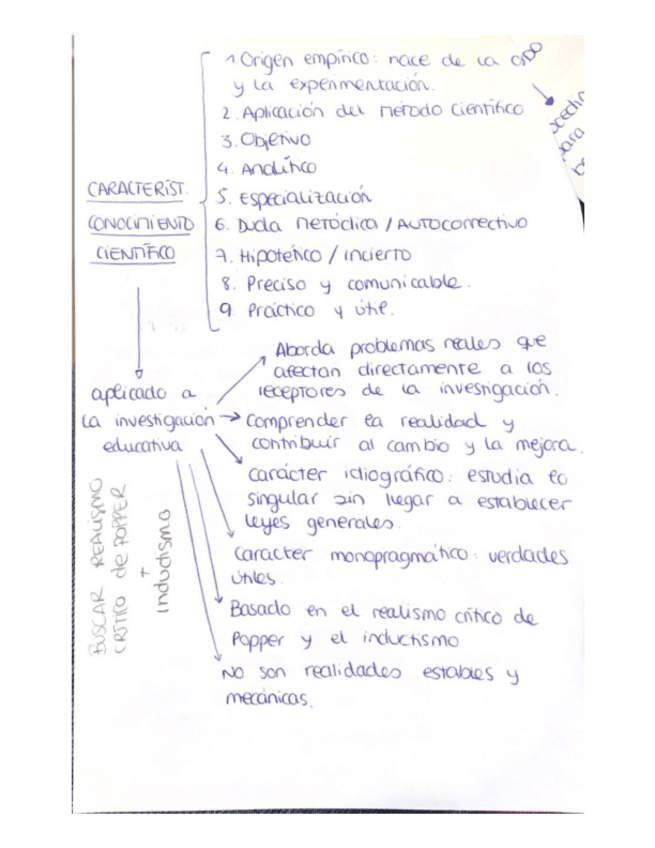 1 Origen empírico: nace de la
y la experimentación.
2. Aplicación del método científico
3. Objetivo
4. Analítico
5. Especialización
6. Duda metódica / AUTOcorrectivo
7. Hipotético / incierto
8. Preciso y comunicable.
9. Práctico y útil.
CARACTERÍST.
CONOCIMIENTO
CIENTÍFICO
aplicado a
la investigación
educativa
Aborda problemas reales que
afectan directamente a los
receptores de la investigación.
Comprender la realidad y
contribuir al cambio y la mejora.
Carácter idiográfico: estudia lo
singular sin llegar a establecer
leyes generales.
Caracter monopragmático: verdades
útiles.
Basado en el realismo crítico de
Popper y el inductismo
No son realidades estables y
mecánicas.
BUSCAR REALISMO
CRÍTICO de POPPER
+
Inductismo
para